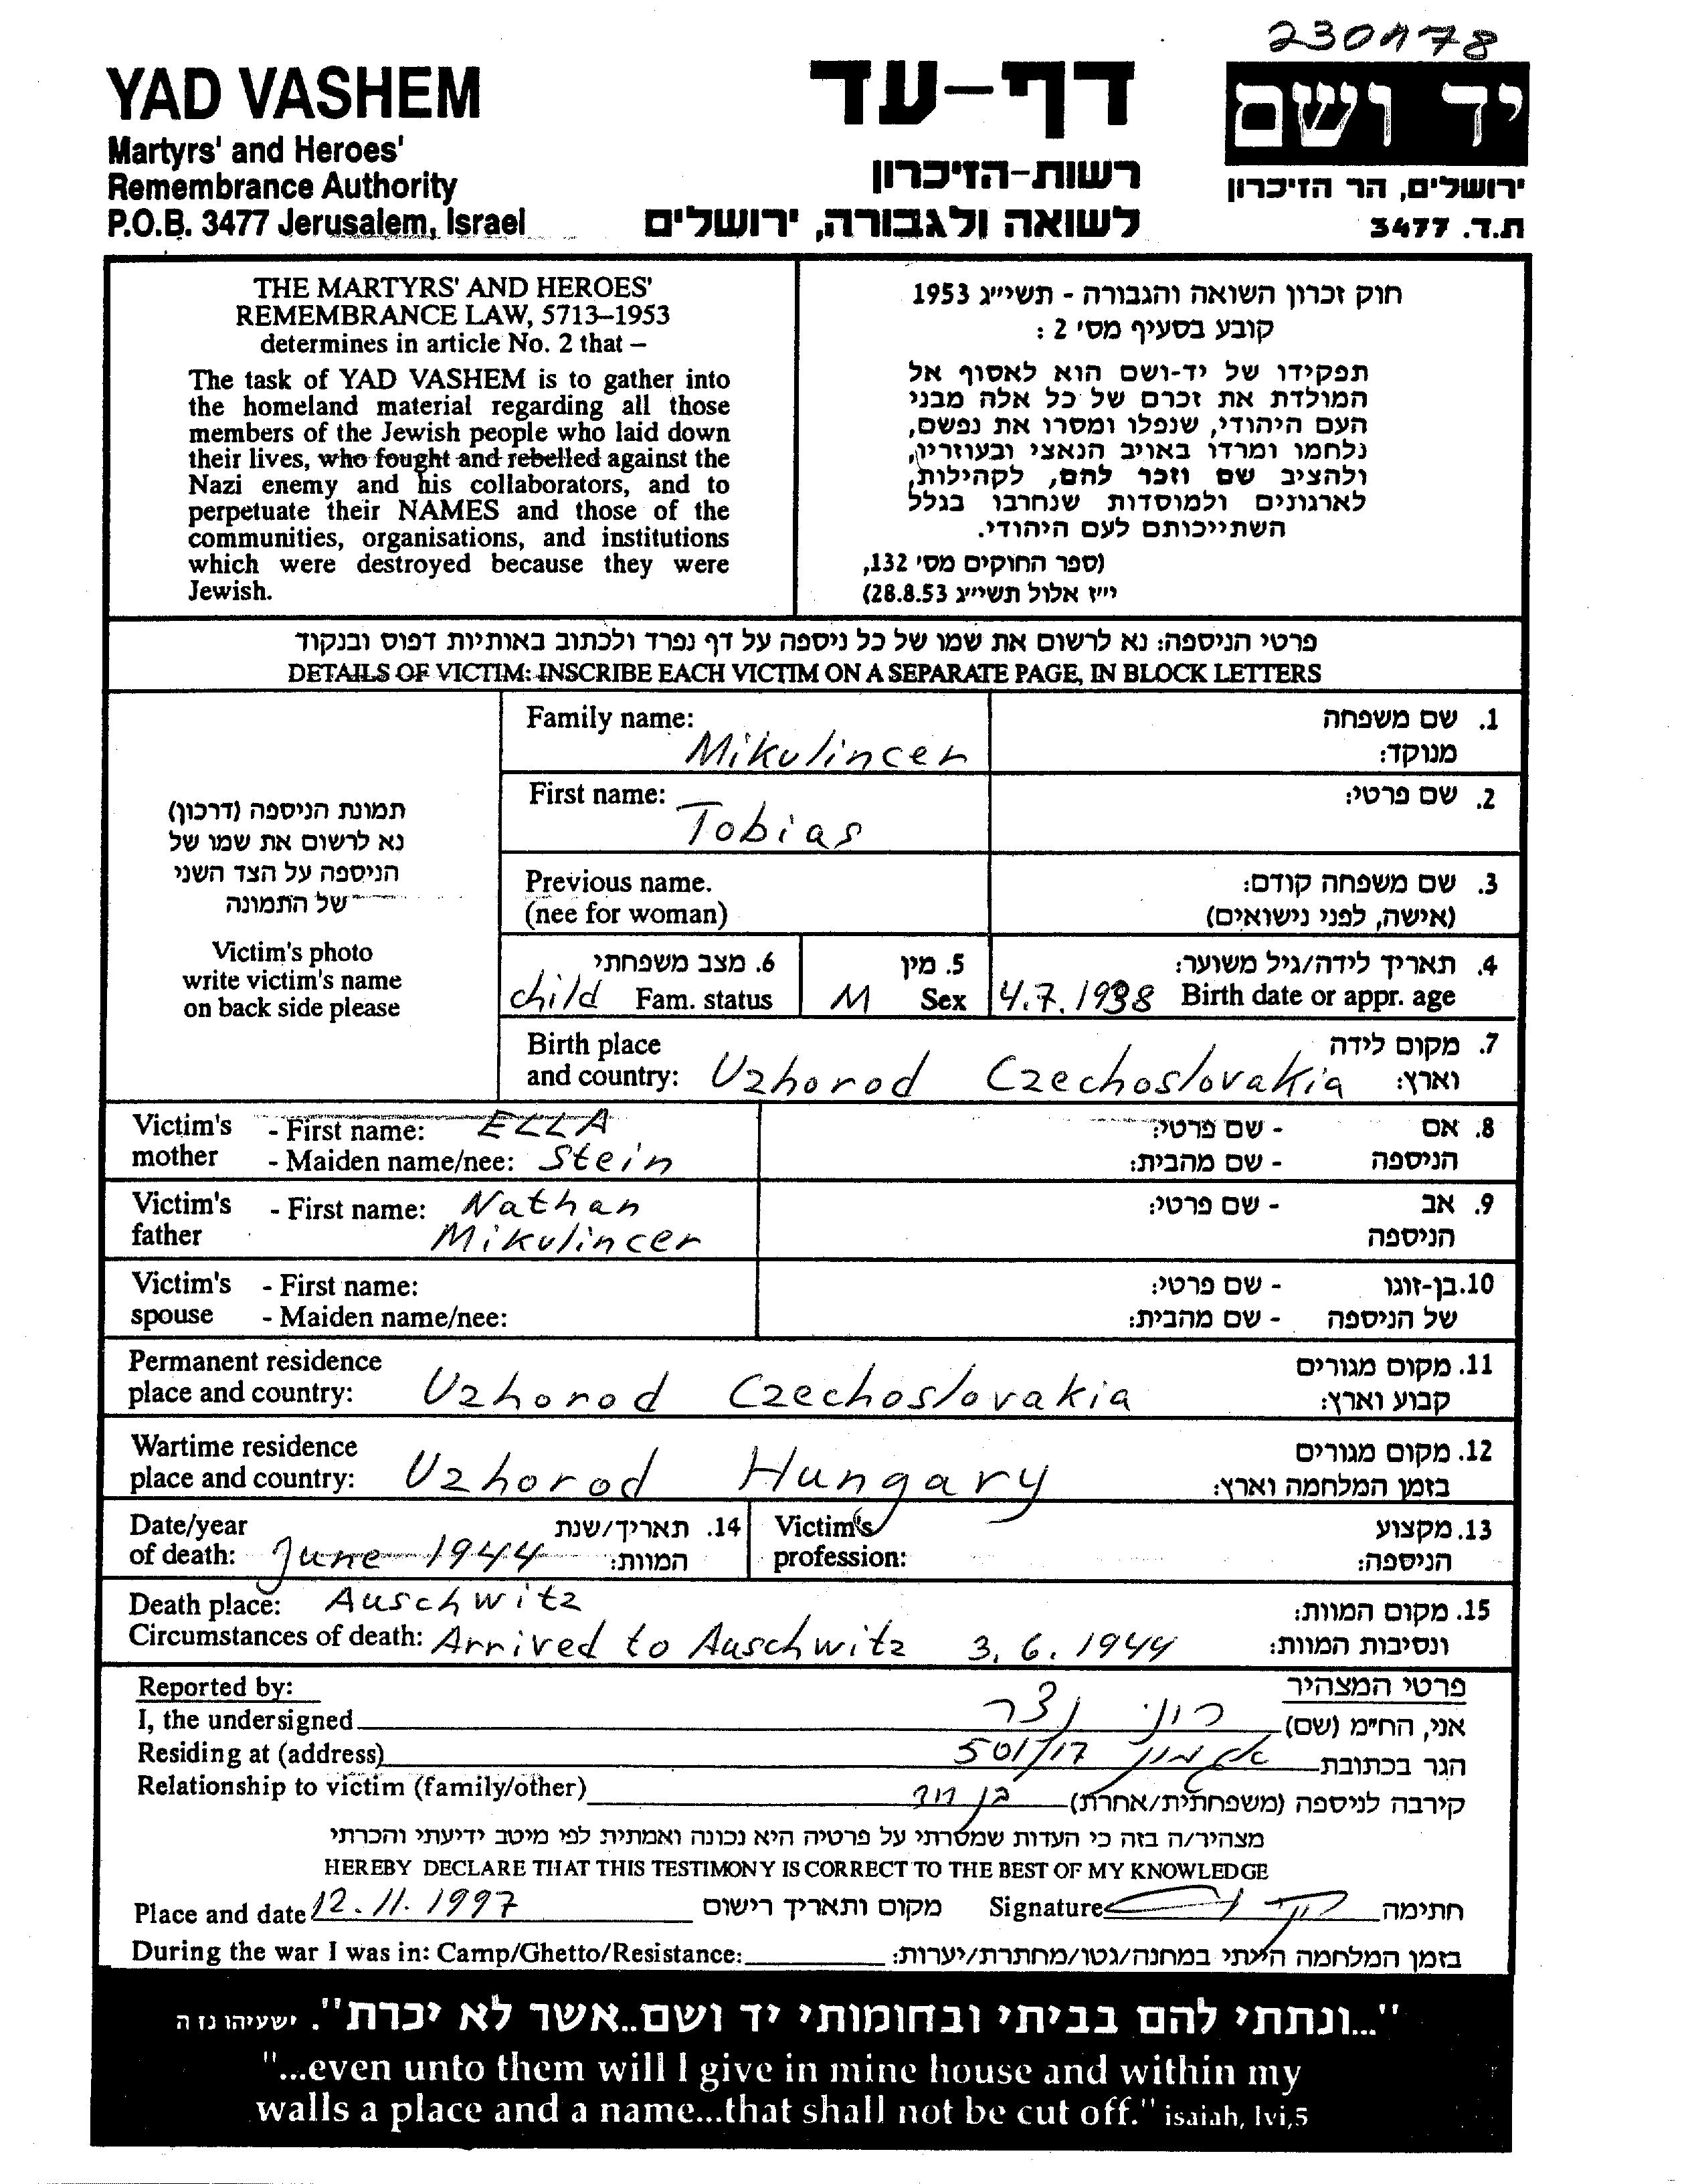 230178
YAD VASHEM
Martyrs' and Heroes'
Remembrance Authority
P.O.B. 3477 Jerusalem, Israel
דף-עד
רשות-הזיכרון
לשואה ולגבורה, ירושלים
יד ושם
ירושלים, הר הזיכרון
ת.ד. 3477
THE MARTYRS' AND HEROES'
REMEMBRANCE LAW, 5713–1953
determines in article No. 2 that –
The task of YAD VASHEM is to gather into
the homeland material regarding all those
members of the Jewish people who laid down
their lives, who fought and rebelled against the
Nazi enemy and his collaborators, and to
perpetuate their NAMES and those of the
communities, organisations, and institutions
which were destroyed because they were
Jewish.
חוק זכרון השואה והגבורה - תשי״ג 1953
קובע בסעיף מס' 2 :
תפקידו של יד-ושם הוא לאסוף אל
המולדת את זכרם של כל אלה מבני
העם היהודי, שנפלו ומסרו את נפשם,
נלחמו ומרדו באויב הנאצי ובעוזריו,
ולהציב שם וזכר להם, לקהילות,
לארגונים ולמוסדות שנחרבו בגלל
השתייכותם לעם היהודי.
(ספר החוקים מס' 132,
י״ז אלול תשי״ג 28.8.53)
פרטי הניספה: נא לרשום את שמו של כל ניספה על דף נפרד ולכתוב באותיות דפוס ובנקוד
DETAILS OF VICTIM: INSCRIBE EACH VICTIM ON A SEPARATE PAGE, IN BLOCK LETTERS
תמונת הניספה (דרכון)
נא לרשום את שמו של
הניספה על הצד השני
של התמונה
Victim's photo
write victim's name
on back side please
Family name: Mikulincer 1. שם משפחה
מנוקד:
First name: Tobias 2. שם פרטי:
Previous name.
(nee for woman)
3. שם משפחה קודם:
(אישה, לפני נישואים)
6. מצב משפחתי
child Fam. status
5. מין
M Sex
4. תאריך לידה/גיל משוער:
4.7.1938 Birth date or appr. age
Birth place 7. מקום לידה
and country: Uzhorod Czechoslovakia וארץ:
Victim's - First name: ELLA - שם פרטי: 8. אם
mother - Maiden name/nee: Stein - שם מהבית: הניספה
Victim's - First name: Nathan - שם פרטי: 9. אב
father Mikulincer הניספה
Victim's - First name: - שם פרטי: 10. בן-זוגו
spouse - Maiden name/nee: - שם מהבית: של הניספה
Permanent residence 11. מקום מגורים
place and country: Uzhorod Czechoslovakia קבוע וארץ:
Wartime residence 12. מקום מגורים
place and country: Uzhorod Hungary בזמן המלחמה וארץ:
Date/year 14. תאריך/שנת
of death: June 1944 המוות:
Victim's 13. מקצוע
profession: הניספה:
Death place: Auschwitz 15. מקום המוות:
Circumstances of death: Arrived to Auschwitz 3.6.1944 ונסיבות המוות:
Reported by: פרטי המצהיר
I, the undersigned רוני נצר אני, הח״מ (שם)
Residing at (address) 501/17 הגר בכתובת
Relationship to victim (family/other) בן דוד קירבה לניספה (משפחתית/אחרת)
מצהיר/ה בזה כי העדות שמסרתי על פרטיה היא נכונה ואמתית לפי מיטב ידיעתי והכרתי
HEREBY DECLARE THAT THIS TESTIMONY IS CORRECT TO THE BEST OF MY KNOWLEDGE
Place and date 12.11.1997 מקום ותאריך רישום Signature חתימה
During the war I was in: Camp/Ghetto/Resistance: בזמן המלחמה הייתי במחנה/גטו/מחתרת/יערות:
"...ונתתי להם בביתי ובחומותי יד ושם..אשר לא יכרת". ישעיהו נז ה
"...even unto them will I give in mine house and within my
walls a place and a name...that shall not be cut off." isaiah, lvi,5